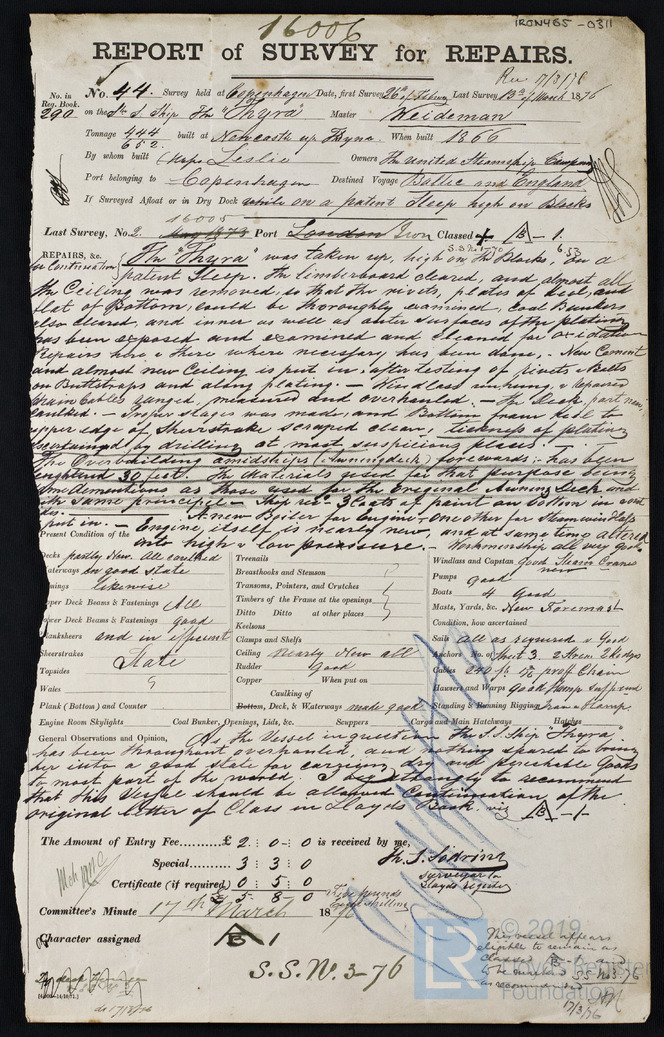 16006
IRON465-0311
REPORT of SURVEY for REPAIRS.
Rec 17/3/76
No. in Reg. Book. 290
No. 44. Survey held at Copenhagen Date, first Survey 26th of February Last Survey 13th of March 1876
on the S. Ship The "Thyra" Master Weideman
Tonnage 444 652 built at Newcastle up Tyne. When built 1866
By whom built Leslie Owners The United Steamship Company
Port belonging to Copenhagen Destined Voyage Baltic and England
If Surveyed Afloat or in Dry Dock on a patent Sleep high on Blocks
16005
Last Survey, No. 2. Port London Iron Classed + A B - 1.
REPAIRS, &c. The "Thyra" was taken up, high on the Blocks, on a
in Continuation patent Sleep. The limberboard cleared, and almost all
the Ceiling was removed, so that the rivets, plates of keel, and
flat of Bottom, could be thoroughly examined, Coal Bunkers
also cleared, and inner as well as outer surfaces of the plating
has been exposed and examined and cleaned for oxidation
Repairs here & there where necessary has been done, - New Cement
and almost new Ceiling is put in, after testing of rivets & Bolts
on Buttstraps and along plating. - Windlass unhung, & repaired
Chain Cables ganged, measured and overhauled. - The deck, part new,
caulked. - Proper stages was made, and Bottom from keel to
upper edge of Sheerstrake scraped clean, tickness of plating
ascertained by drilling at most suspicious places. -
The Overbuilding amidships (Awningdeck) forewards, has been
lenghtened 30 feet. The Materials used for that purpose being
same dementions as those used for the Original Awning Deck and
the same principle. - They use 3 Coats of paint on bottom in
A new Boiler for Engine, one other for Steamwinches
put in. - Engine itself is nearly new, and at same time altered
into high & low pressure. - Workmanship all very good
Present Condition of the
Decks partly New. All caulked
Waterways in good state
likewise
Upper Deck Beams & Fastenings All
Lower Deck Beams & Fastenings good
Planksheers and in efficient
Sheerstrakes State
Topsides
Wales
Plank (Bottom) and Counter
Treenails
Breasthooks and Stemson
Transoms, Pointers, and Crutches
Timbers of the Frame at the openings
Ditto Ditto at other places
Keelsons
Clamps and Shelfs
Ceiling nearly New all
Rudder Good
Copper When put on
Caulking of
Bottom, Deck, & Waterways made good
Windlass and Capstan Good
new
Pumps good
Boats 4 Good
Masts, Yards, &c. New Foremast
Condition, how ascertained
Sails all as required & Good
Anchors No. 3
Cables 240 proff Chain
Hawsers and Warps Good
Standing & Running Rigging
Engine Room Skylights Coal Bunker, Openings, Lids, &c. Scuppers Cargo and Main Hatchways Hatches
General Observations and Opinion, As the Vessel in question, the S.S. Ship "Thyra"
has been throughout overhauled, and nothing spared to bring
her into a good state for carrying dry and perishable Goods
to most part of the world. I beg to recommend
that this Vessel should be allowed Continuation of the
original letter of Class in Lloyds Book, viz A B -1-
The Amount of Entry Fee..........£ 2 : 0 : 0 is received by me,
Special.......... 3 : 3 : 0
Certificate (if required) 0 : 5 : 0
£ 5 8 0
Surveyor to
Lloyds Register
Committee's Minute 17th March 1876
Character assigned A B 1
S.S. No. 3-76
This vessel appears
eligible to remain as
classed
as recommended
17/3/76
© 2019
LR
Lloyd's Register
Foundation